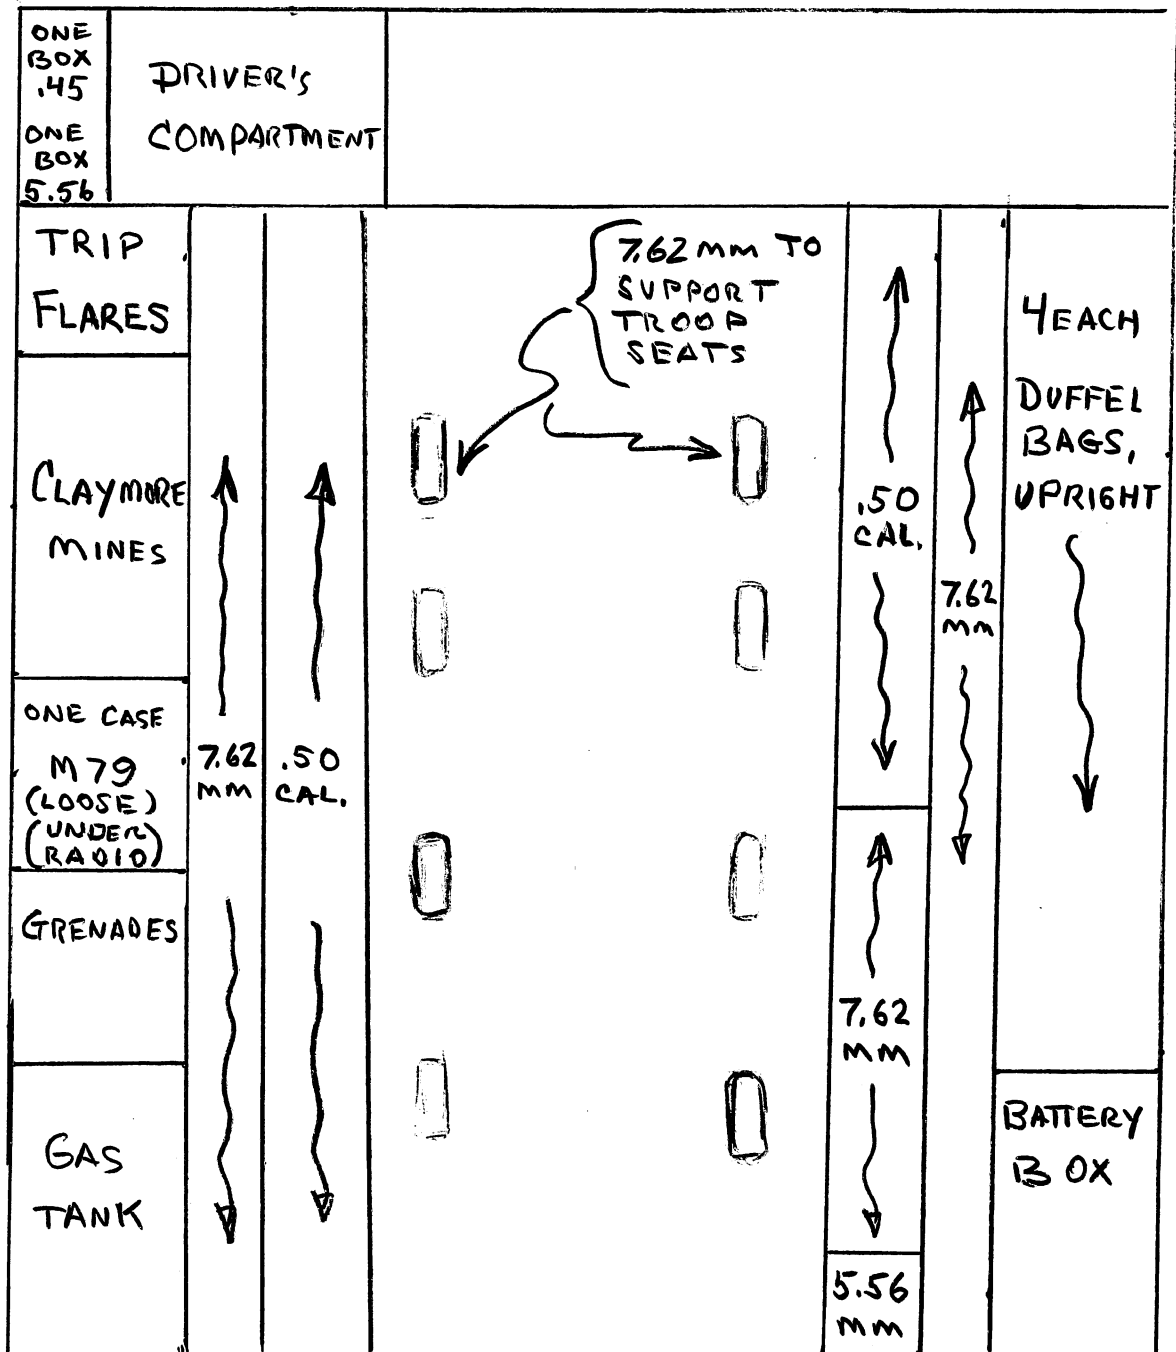 ONE
BOX
.45
ONE
BOX
5.56
DRIVER'S
COMPARTMENT
TRIP
FLARES
CLAYMORE
MINES
ONE CASE
M79
(LOOSE)
(UNDER
RADIO)
GRENADES
GAS
TANK
7.62
MM
.50
CAL.
7.62 MM TO
SUPPORT
TROOP
SEATS
.50
CAL.
7.62
MM
5.56
MM
7.62
MM
4 EACH
DUFFEL
BAGS,
UPRIGHT
BATTERY
BOX